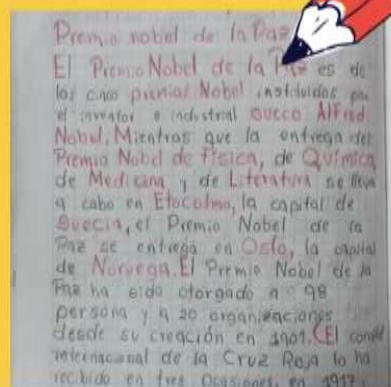 Premio nobel de la Paz
El Premio Nobel de la Paz es de
los cinco premios Nobel instituidos por
el inventor e industrial sueco Alfred
Nobel. Mientras que la entrega del
Premio Nobel de Física, de Química,
de Medicina, y de Literatura se lleva
a cabo en Etocolmo, la capital de
Suecia, el Premio Nobel de la
Paz se entrega en Oslo, la capital
de Noruega. El Premio Nobel de la
Paz ha sido otorgado a 98
persona y a 20 organizaciones
desde su creación en 1901. (El comité
internacional de la Cruz Roja lo ha
recibido en tres ocasiones, en 1917,